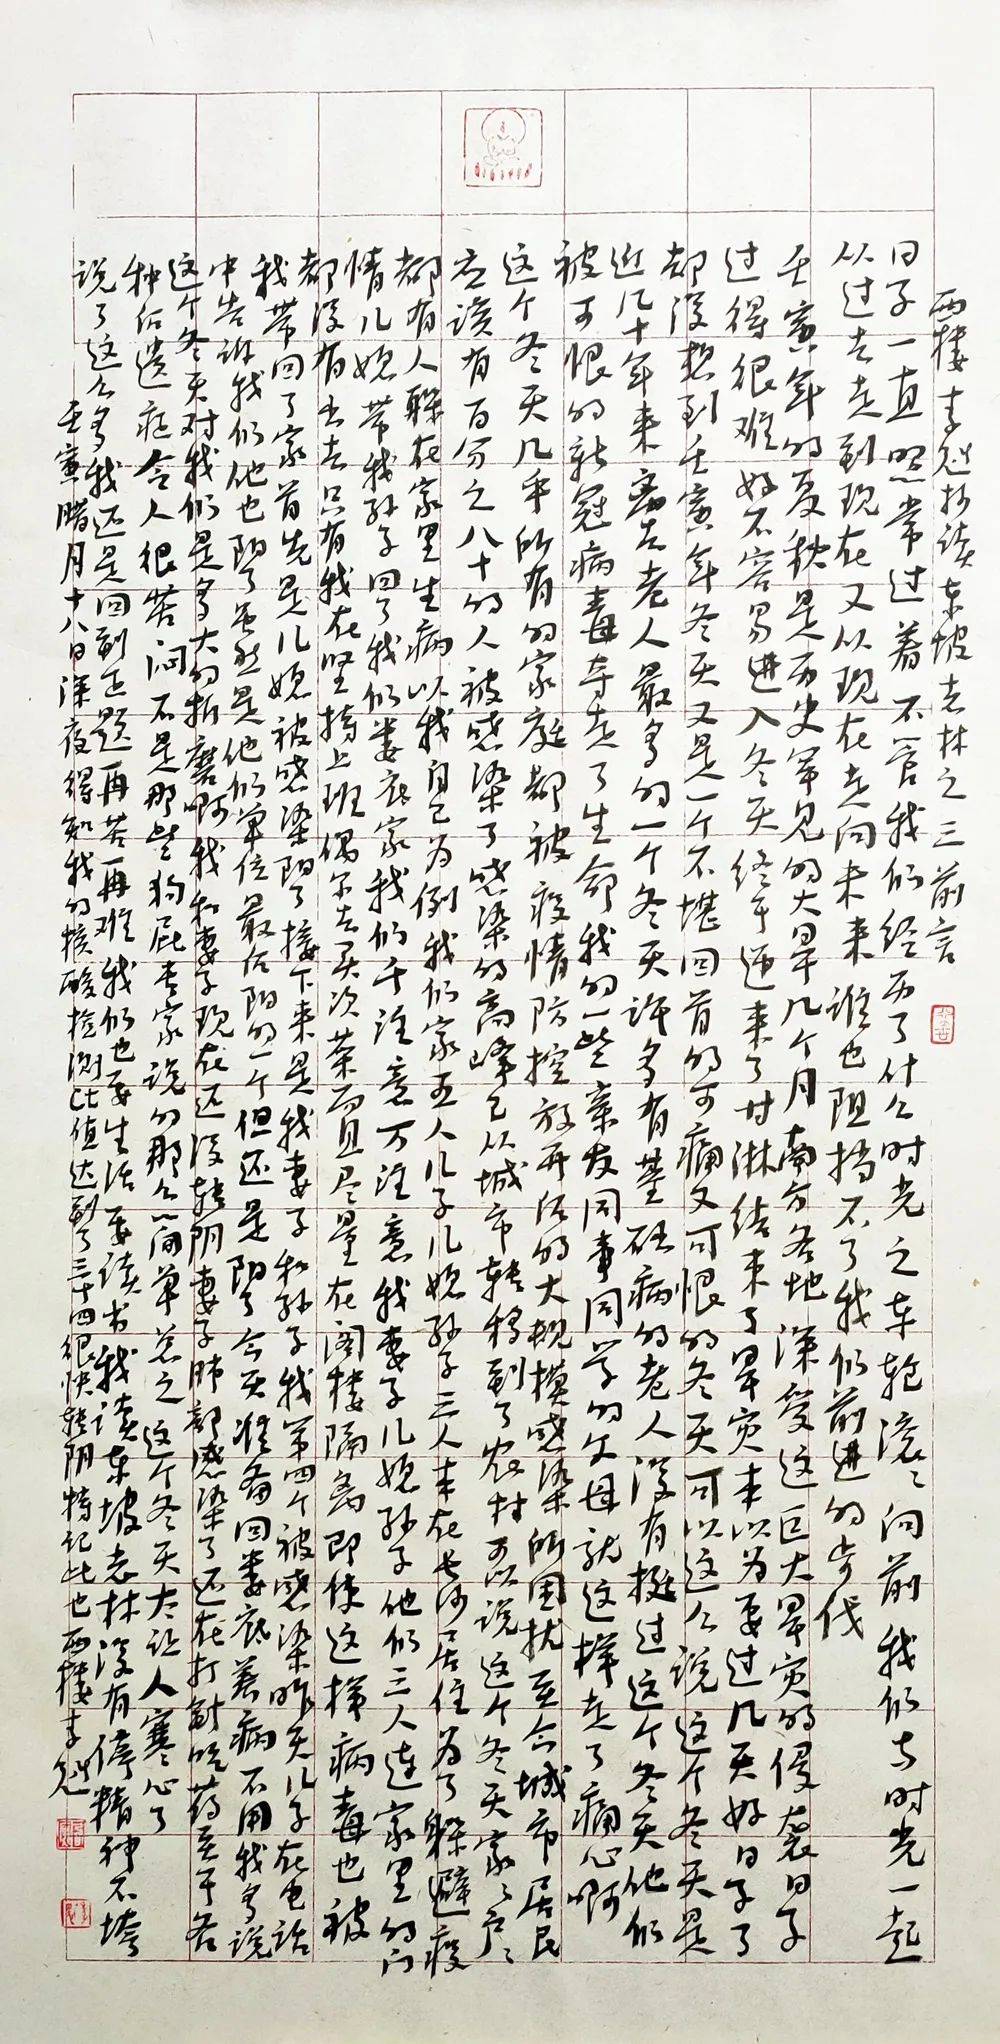 西楼李旭抄读东坡志林之三前言
日子一直照常过着不管我们经历了什么时光之车轮滚滚向前我们与时光一起
从过去走到现在又从现在走向未来谁也阻挡不了我们前进的步伐
壬寅年的夏秋是历史罕见的大旱几个月南方各地深受这巨大旱灾的侵袭日子
过得很难好不容易进入冬天终于迎来了甘淋结束了旱灾本以为要过几天好日子了
却没想到壬寅年冬天又是一个不堪回首的可痛又可恨的冬天可以这么说这个冬天是
近几十年来离去老人最多的一个冬天许多有基础病的老人没有挺过这个冬天他们
被可恨的新冠病毒夺走了生命我的一些亲友同事同学的父母就这样走了痛心啊
这个冬天几乎所有的家庭都被疫情防控放开后的大规模感染所困扰至今城市居民
应该有百分之八十的人被感染了感染的高峰已从城市转移到了农村可以说这个冬天家家户户
都有人躲在家里生病以我自己为例我们家五人儿子儿媳孙子三人本在长沙居住为了躲避疫
情儿媳带我孙子回了我们娄底家我们千注意万注意我妻子儿媳孙子他们三人连家里的门
都没有出去只有我在坚持上班偶尔去买次菜而且尽量在阁楼隔离即使这样病毒也被
我带回了家首先是儿媳被感染阳了接下来是我妻子和孙子我第四个被感染昨天儿子在电话
中告诉我们他也阳了虽然是他们单位最后阳的一个但还是阳了今天准备回娄底养病不用我多说
这个冬天对我们是多大的折磨啊我和妻子现在还没转阴妻子肺部感染了还在打针吃药至于各
种后遗症令人很苦闷不是那些狗屁专家说的那么简单总之这个冬天太让人寒心了
说了这么多我还是回到正题再苦再难我们也要生活要读书我读东坡志林没有停精神不垮
壬寅腊月十八日深夜得知我的核酸检测ct值达到了三十四很快转阴特记此也西楼李旭